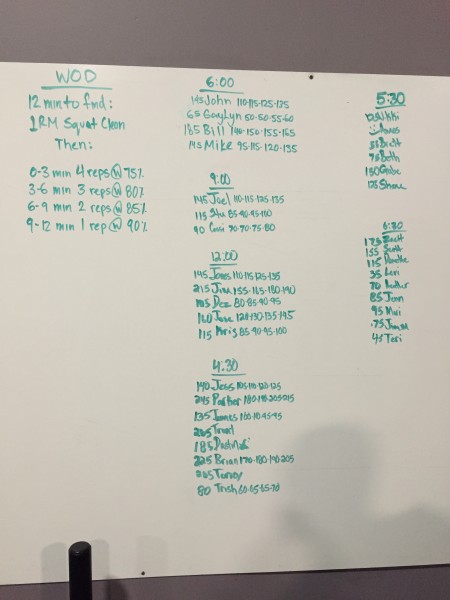 WOD
12 min to find:
1RM Squat Clean
Then:
0-3 min 4 reps @ 75%
3-6 min 3 reps @ 80%
6-9 min 2 reps @ 85%
9-12 min 1 rep @ 90%
6:00
145 John 110-115-125-135
65 Gaylyn 50-50-55-60
185 Bill 140-150-155-165
145 Mike 95-115-120-135
9:00
145 Joel 110-115-125-135
115 85-90-95-100
90 70-70-75-80
12:00
145 110-115-125-135
215 Jim 155-165-180-190
105 Dez 80-85-90-95
160 120-130-135-145
115 Kris 85-90-95-100
4:30
140 Jess 105-110-120-125
245 Parker 180-195-205-215
135 James
205
185
225 Brian 170-180-190-205
205
80 Trish 60-65-65-70
5:30
125 Nikki
55
75 Beth
150 Gabe
125 Shane
6:30
175
155 Scott
115
35 Levi
70
85 Jenn
95
75
45 Teri